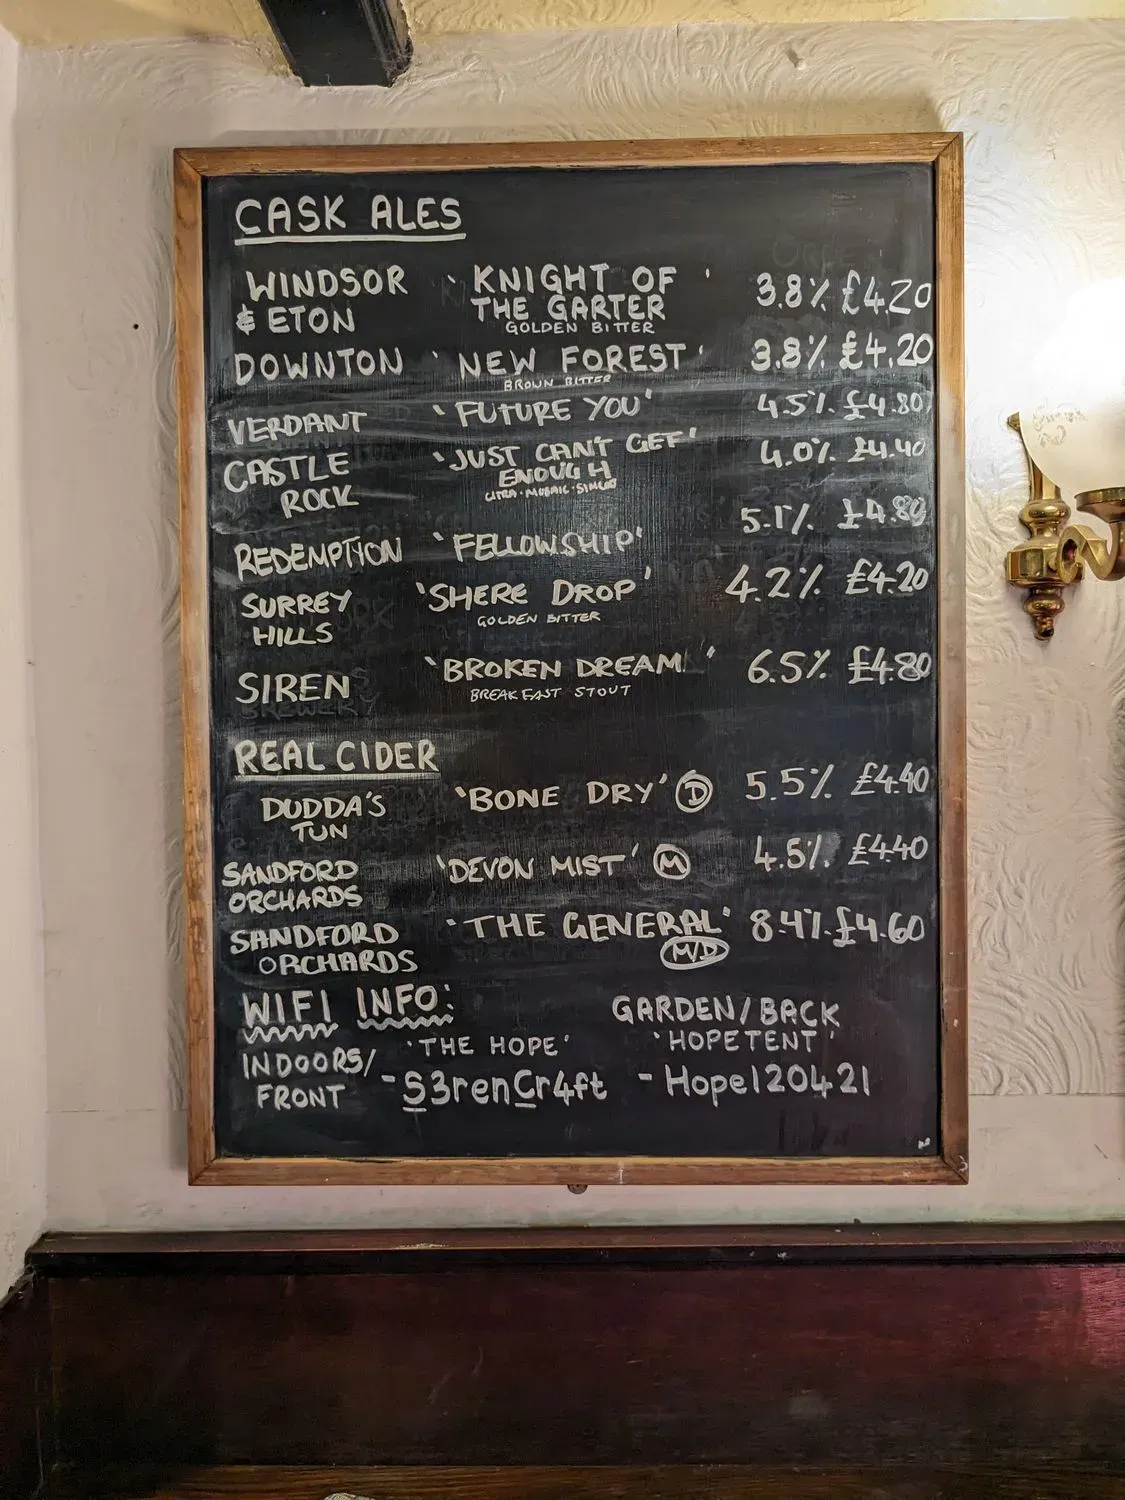 CASK ALES
WINDSOR & ETON 'KNIGHT OF THE GARTER' 3.8% £4.20
GOLDEN BITTER
DOWNTON 'NEW FOREST' 3.8% £4.20
BROWN BITTER
VERDANT 'FUTURE YOU' 4.5% £4.80
CASTLE ROCK 'JUST CAN'T GET ENOUGH' 4.0% £4.40
CITRA · MOSAIC · SIMCOE
REDEMPTION 'FELLOWSHIP' 5.1% £4.80
SURREY HILLS 'SHERE DROP' 4.2% £4.20
GOLDEN BITTER
SIREN 'BROKEN DREAM' 6.5% £4.80
BREAKFAST STOUT
REAL CIDER
DUDDA'S TUN 'BONE DRY' D 5.5% £4.40
SANDFORD ORCHARDS 'DEVON MIST' M 4.5% £4.40
SANDFORD ORCHARDS 'THE GENERAL' M/D 8.4% £4.60
WIFI INFO:
INDOORS/FRONT 'THE HOPE'
- S3renCr4ft
GARDEN/BACK
'HOPETENT'
- Hope120421